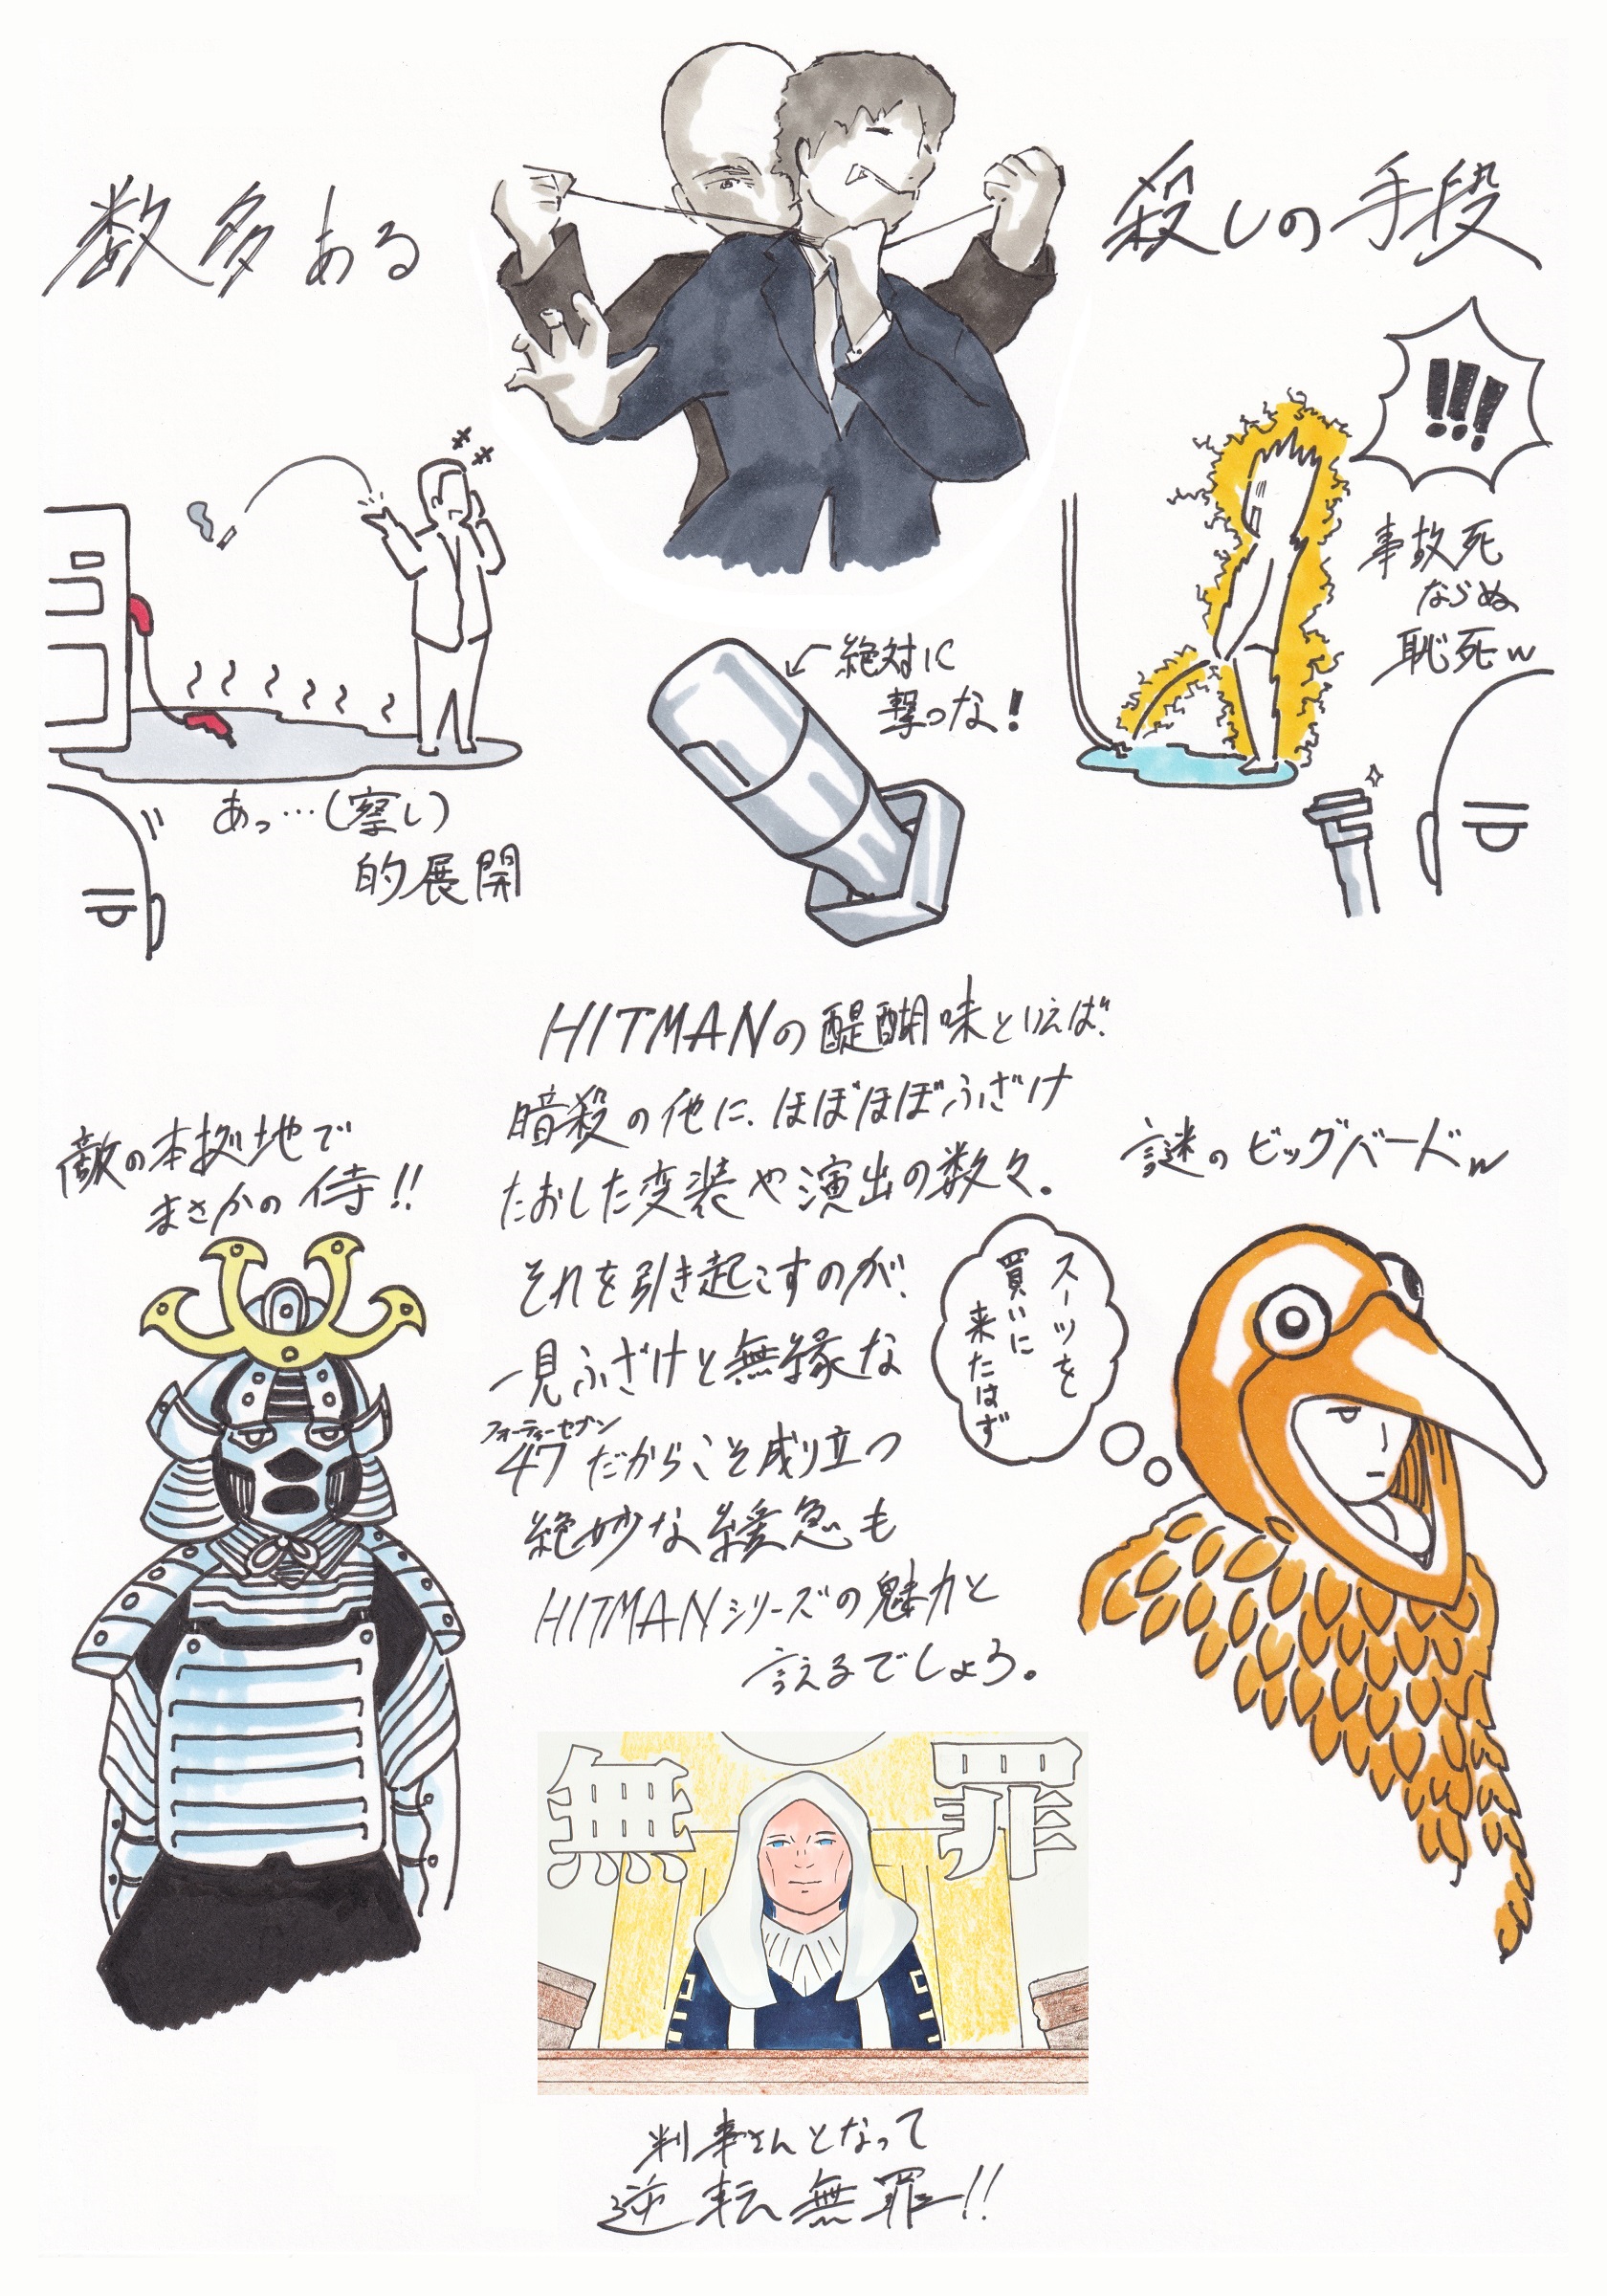 数多ある
殺しの手段
!!!
事故死
ならぬ
恥死w
←絶対に
撃つな!
あっ…(察し)
的展開
HITMANの醍醐味といえば、
暗殺の他に、ほぼほぼふざけ
たおした変装や演出の数々。
それを引き起こすのが、
一見ふざけと無縁な
フォーティーセブン
47だからこそ成り立つ
絶妙な緩急も
HITMANシリーズの魅力と
言えるでしょう。
敵の本拠地で
まさかの侍!!
謎のビッグバードw
スーツを
買いに
来たはず
無罪
判事さんとなって
逆転無罪!!